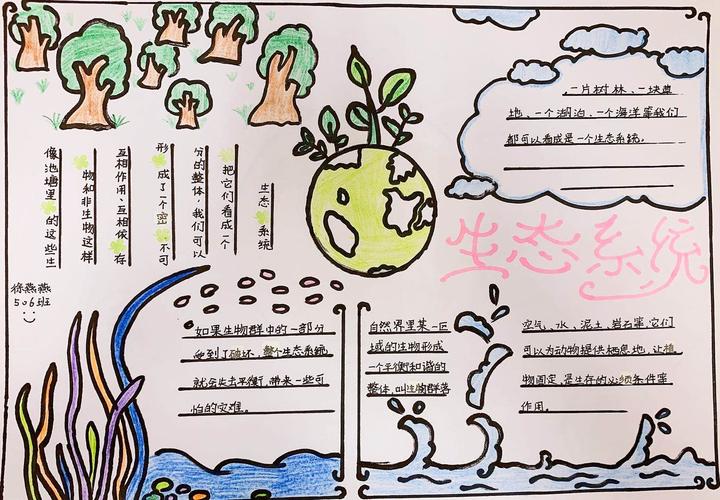 一片树林、一块草
地、一个湖泊、一个海洋等我们
都可以看成是一个生态系统。
生态系统
像池塘里的这些生
物和非生物这样
互相作用、互相依存
形成了一个密不可
分的整体，我们可以
把它们看成一个
生态系统
徐燕燕
506班
如果生物群中的一部分
受到了破坏，整个生态系统
就会失去平衡，带来一些可
怕的灾难。
自然界里某一区
域的生物形成
一个平衡和谐的
整体，叫生物群落
空气、水、泥土、岩石等，它们
可以为动物提供栖息地，让植
物固定，是生存的必须条件等
作用。